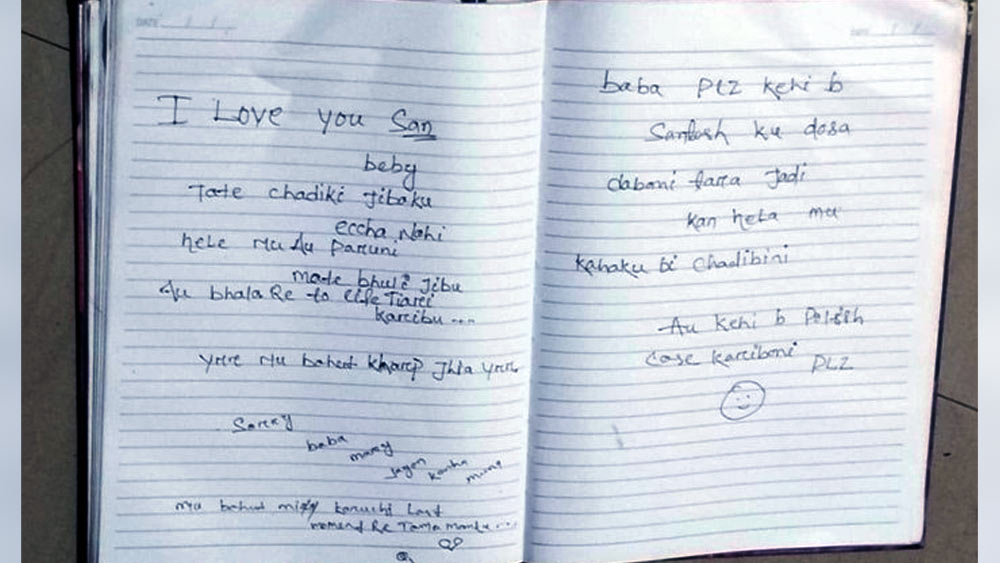 DATE
I Love you San
beby
Tate chadiki Jibaku
eccha Nahi
hele Mu Au Paruni
mate bhuli Jibu
Au bhala Re to life Tiari
karibu ...
yrrr Mu bahut kharap Jhia yrrr
Sorry
baba
mamy
Jagen
kanha
muna
mu bahut miss karuchi Last
moment Re Tama mantu ...
baba PLZ kehi b
Santosh ku dosa
daboni tara Jadi
kan hela mu
kahaku bi chadibini
Au kehi b Polish
case kariboni PLZ